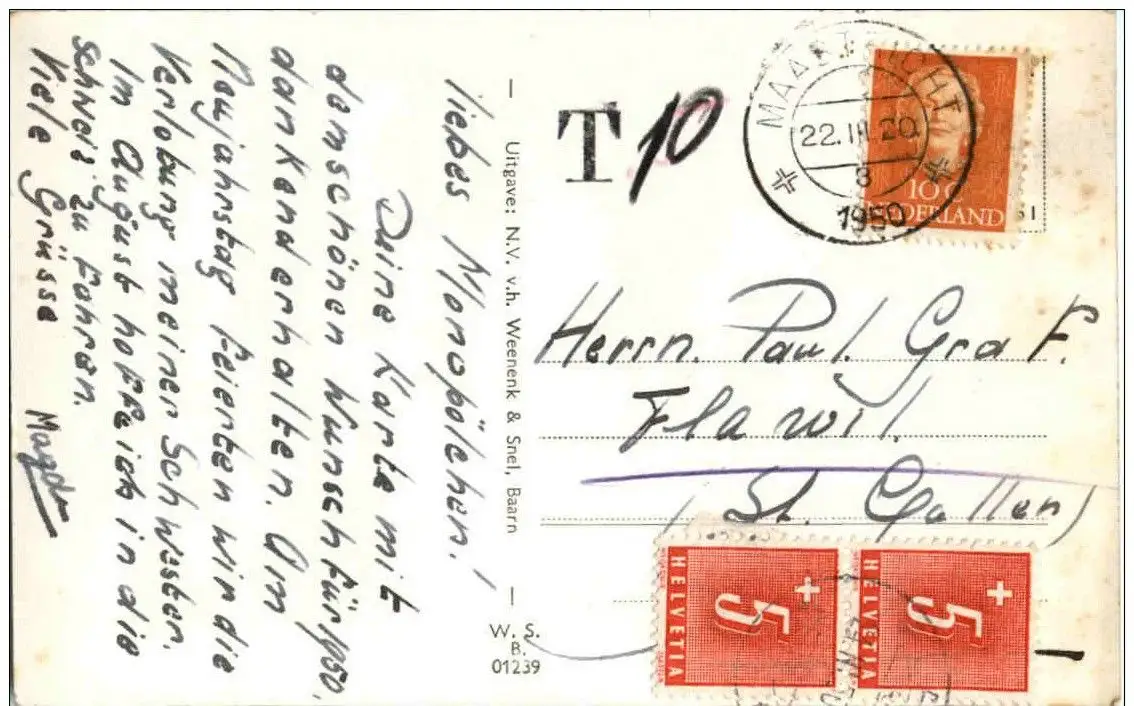 liebes Monopölchen!
Deine Karte mit
dem schönen Wunsch für 1950,
dankend erhalten. Am
Neujahrstag feierten wir die
Verlobung meiner Schwester.
Im August hoffe ich in die
Schweiz zu fahren.
Viele Grüsse
Magda
Uitgave: N.V. v.h. Weenenk & Snel, Baarn
W. S.
B.
01239
T 10
MAASTRICHT
22.III.20
8
1950
10 C
NEDERLAND
Herrn. Paul Graf.
Flawil.
(St. Gallen)
HELVETIA
5
HELVETIA
5